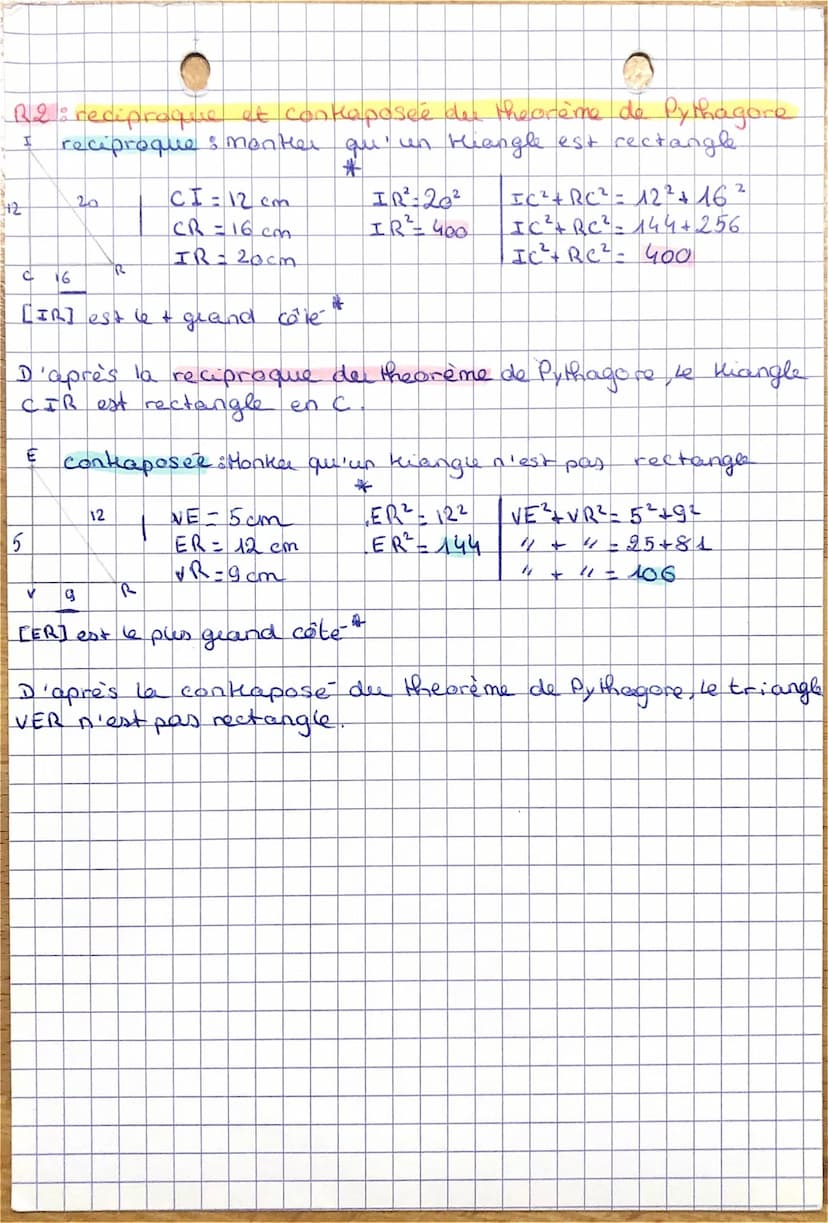 R2 : reciproque et contraposeé du theorème de Pythagore
reciproque : montrer qu'un triangle est rectangle
*
I
12
20
C
16
R
CI = 12 cm
CR = 16 cm
IR = 20cm
IR² = 20²
IR² = 400
IC² + RC² = 12² + 16²
IC² + RC² = 144 + 256
IC² + RC² = 400
[IR] est le + grand côte *
D'après la reciproque du theorème de Pythagore, le triangle
CIR est rectangle en C.
contraposée : Montrer qu'un triangle n'est pas rectangle
*
E
12
5
V
9
R
VE = 5cm
ER = 12 cm
VR = 9cm
ER² = 12²
ER² = 144
VE² + VR² = 5² + 9²
" + " = 25 + 81
" + " = 106
[ER] est le plus grand côte *
D'après la contraposé du theorème de Pythagore, le triangle
VER n'est pas rectangle.